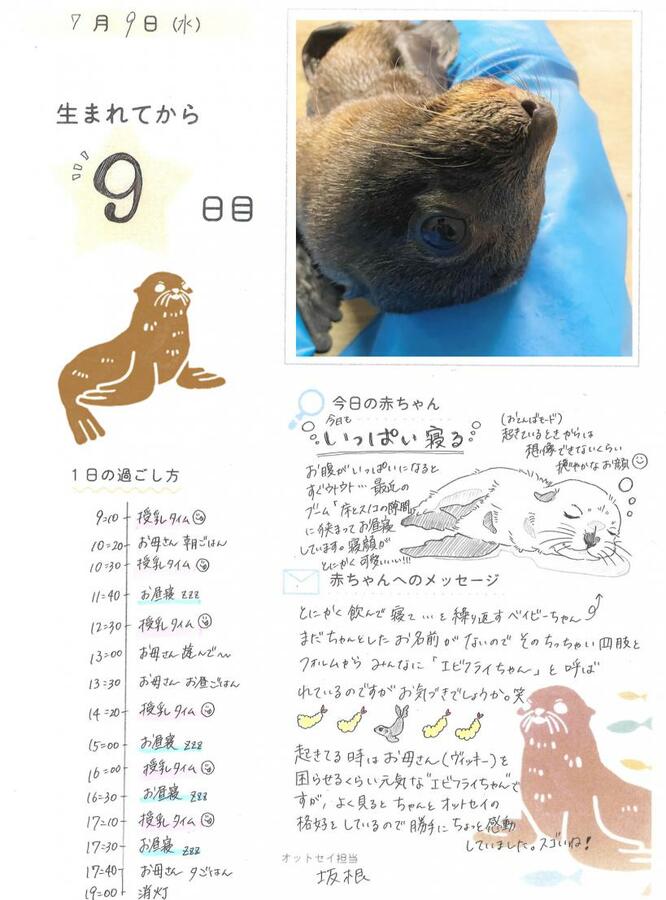 7月9日(水)
生まれてから
9
日目
今日の赤ちゃん
今日も
いっぱい寝る
(おてんばモード)
起きているときからは
想像できないくらい
穏やかなお顔
お腹がいっぱいになると
すぐウトウト…最近の
ブーム「床とスノコの隙間」
に挟まってお昼寝
しています。寝顔が
とにかく可愛いい!!!
1日の過ごし方
9:10 授乳タイム
10:20 お母さん 朝ごはん
10:30 授乳タイム
11:40 お昼寝 zzz
12:30 授乳タイム
13:00 お母さん 遊んで〜
13:30 お母さん お昼ごはん
14:20 授乳タイム
15:00 お昼寝 zzz
16:00 授乳タイム
16:30 お昼寝 zzz
17:10 授乳タイム
17:30 お昼寝 zzz
17:40 お母さん 夕ごはん
19:00 消灯
赤ちゃんへのメッセージ
とにかく飲んで寝て…を繰り返すベイビーちゃん
まだちゃんとしたお名前がないので そのちっちゃい四肢と
フォルムから みんなに「エビフライちゃん」と呼ば
れているのですがお気づきでしょうか。笑
起きてる時はお母さん(ヴィッキー)を
困らせるくらい元気な"エビフライちゃん"で
すが、よく見ると ちゃんとオットセイの
格好をしているので勝手にちょっと感動
していました。スゴいね!
オットセイ担当
坂根